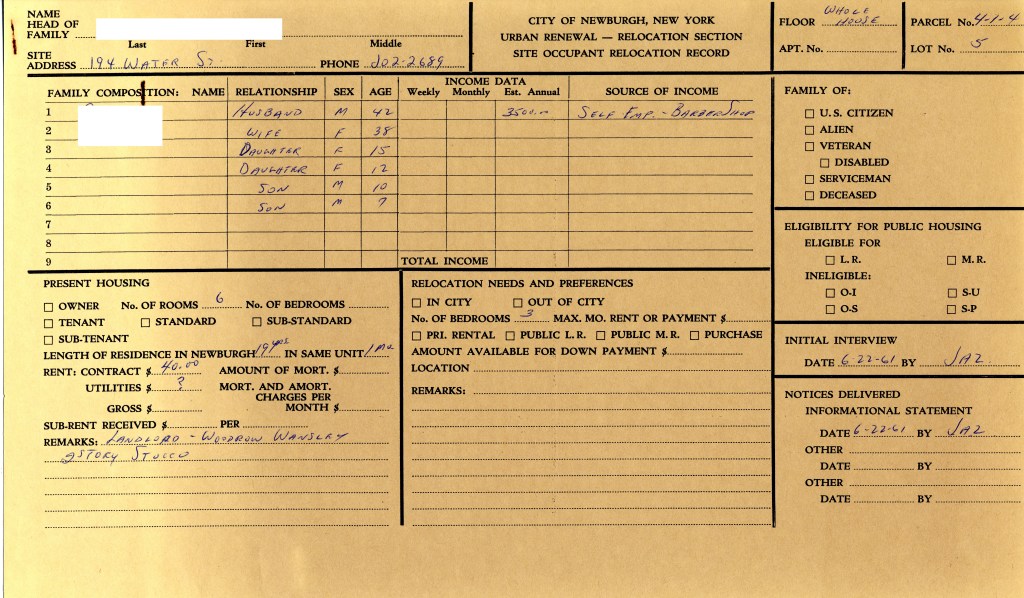 NAME
HEAD OF
FAMILY
Last First Middle
SITE
ADDRESS 194 WATER ST. PHONE JO2-2689
CITY OF NEWBURGH, NEW YORK
URBAN RENEWAL — RELOCATION SECTION
SITE OCCUPANT RELOCATION RECORD
FLOOR WHOLE HOUSE
APT. No.
PARCEL No. 4-1-4
LOT No. 5
INCOME DATA
FAMILY COMPOSITION: NAME RELATIONSHIP SEX AGE Weekly Monthly Est. Annual SOURCE OF INCOME
1 HUSBAND M 42 3500.00 SELF EMP. - BARBERSHOP
2 WIFE F 38
3 DAUGHTER F 15
4 DAUGHTER F 12
5 SON M 10
6 SON M 7
7
8
9 TOTAL INCOME
FAMILY OF:
U. S. CITIZEN
ALIEN
VETERAN
DISABLED
SERVICEMAN
DECEASED
ELIGIBILITY FOR PUBLIC HOUSING
ELIGIBLE FOR
L. R. M. R.
INELIGIBLE:
O-I S-U
O-S S-P
INITIAL INTERVIEW
DATE 6-22-61 BY JAZ
NOTICES DELIVERED
INFORMATIONAL STATEMENT
DATE 6-22-61 BY JAZ
OTHER
DATE BY
OTHER
DATE BY
PRESENT HOUSING
OWNER No. OF ROOMS 6 No. OF BEDROOMS
TENANT STANDARD SUB-STANDARD
SUB-TENANT
LENGTH OF RESIDENCE IN NEWBURGH 19 yrs IN SAME UNIT 1 Mo.
RENT: CONTRACT $ 40.00 AMOUNT OF MORT. $
UTILITIES $ ? MORT. AND AMORT.
CHARGES PER
GROSS $ MONTH $
SUB-RENT RECEIVED $ PER
REMARKS: LANDLORD - WOODROW WANSLEY
2 STORY STUCCO
RELOCATION NEEDS AND PREFERENCES
IN CITY OUT OF CITY
No. OF BEDROOMS 3 MAX. MO. RENT OR PAYMENT $
PRI. RENTAL PUBLIC L. R. PUBLIC M. R. PURCHASE
AMOUNT AVAILABLE FOR DOWN PAYMENT $
LOCATION
REMARKS: